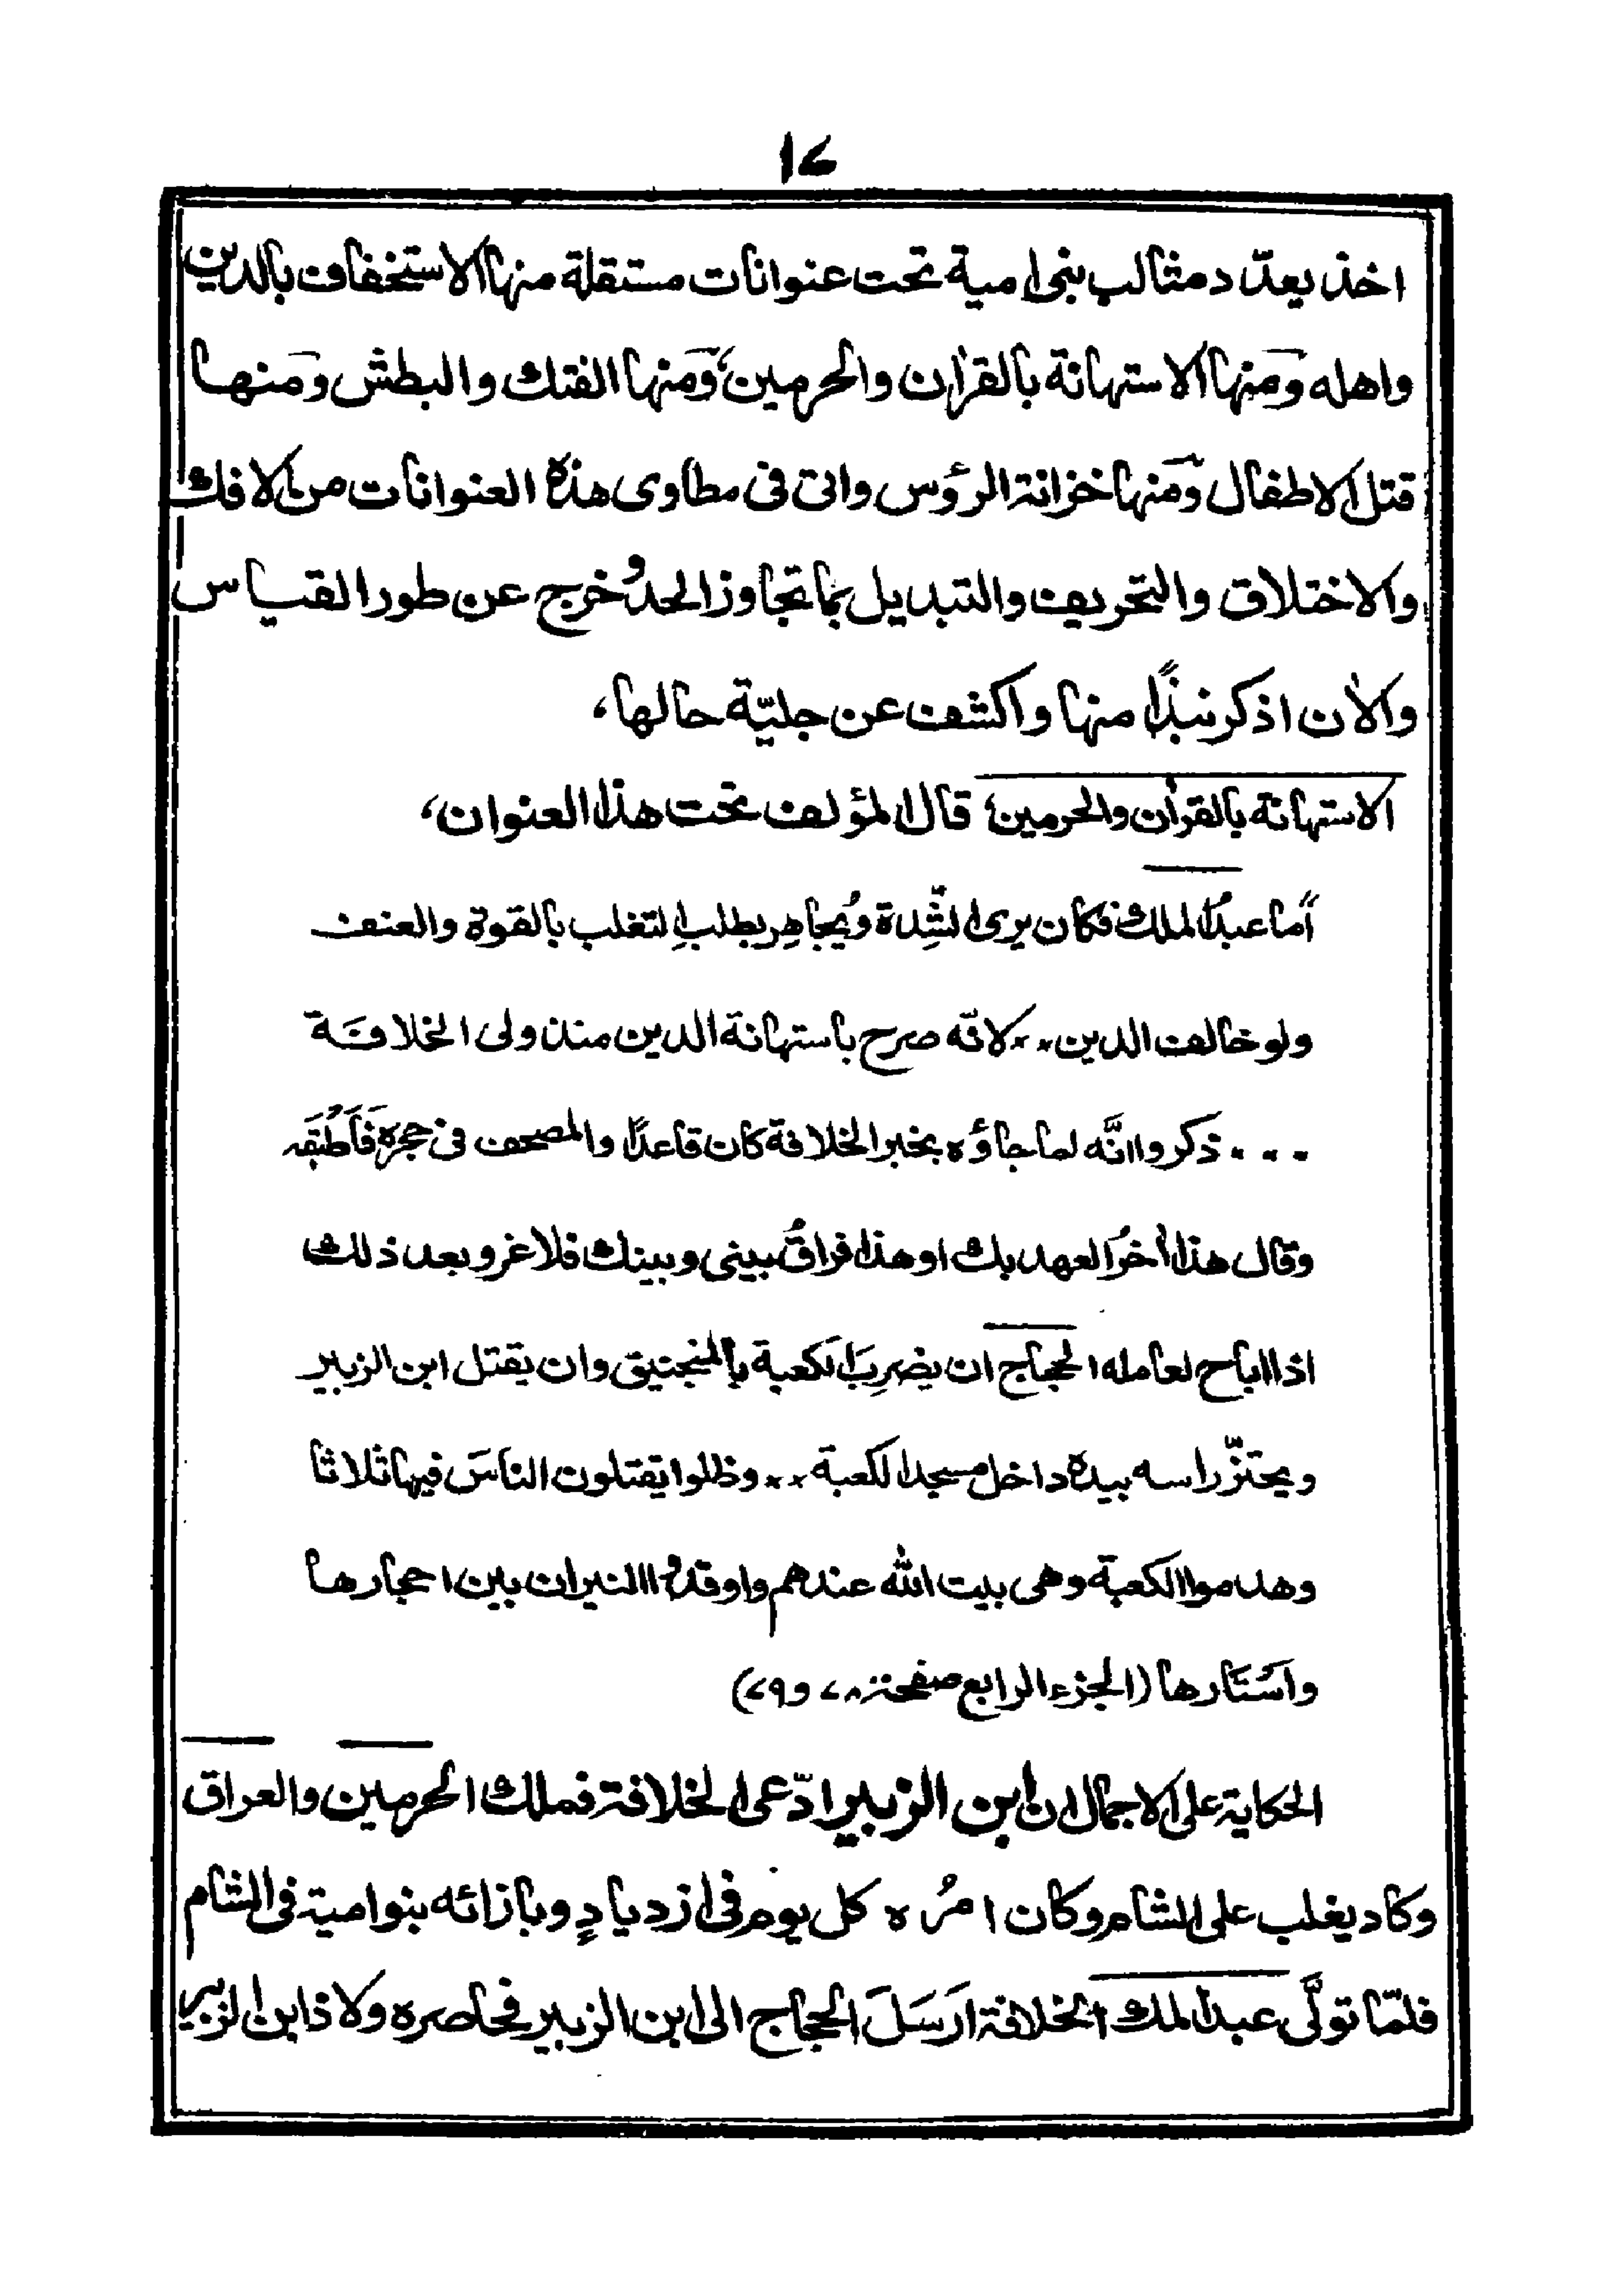 ١٧
اخذ يعدّد مثالب بنى امية تحت عنوانات مستقلة منها الاستخفاف بالدين
واهله ومنها الاستهانة بالقراٰن والحرمين، ومنها الفتك والبطش ومنها
قتل الاطفال ومنها خزانة الرؤس واتى فى مطاوى هذه العنوانات من الافك
والاختلاق والتحريف والتبديل بما تجاوز الحد وخرج عن طور القياس
والاٰن اذكر نبذًا منها واكشف عن جليّة حالها،
الاستهانة بالقراٰن والحرمين، قال المؤلف تحت هذا العنوان،
أما عبدُ الملك فكان يرى الشِّدة ويُجاهِر بطلبِ التغلب بالقوة والعنف
ولو خالف الدين ٠٠ لانّه صرح باستهانة الدين منذ ولى الخلافَة
٠٠٠ ذكروا انَّه لما جاؤه بخبر الخلافة كان قاعدًا والمصحف فى حجرِه فَاَطْبَقَه
وقال هذا اٰخرُ العهد بك او هذا فراقُ بينى وبينك فلا غرو بعد ذلك
اذا اباح لعامله الحجاج ان يضرِبَ الكعبة بالمنجنيق وان يقتل ابن الزبير
ويحتزّ راسه بيده داخل مسجد الكعبة ٠٠ وظلوا يقتلون الناسَ فيها ثلاثا
وهدموا الكعبة وهى بيت الله عندهم واوقدوا النيران بين احجارها
واَسْتَارها (الجزء الرابع صفحة ٧٨ و٧٩)
الحكاية على الاجمال ان ابن الزبير ادّعى الخلافة فملك الحرمين والعراق
وكاد يغلب على الشام وكان امرُه كل يوم فى ازديادٍ وبازائه بنو امية فى الشام
فلمّا تولَّى عبد الملك الخلافة ارَسَلَ الحجاج الى ابن الزبير فحاصره ولاذ ابن الزبير